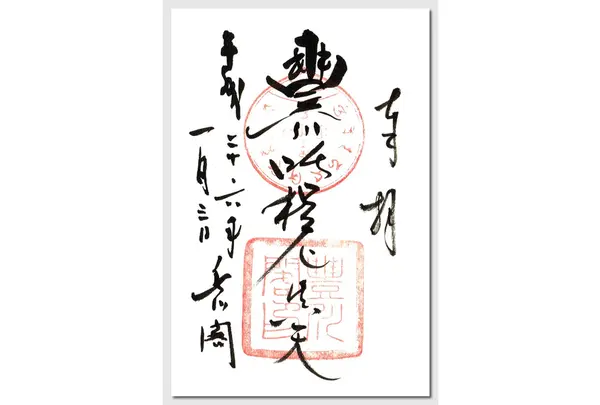 奉拝
豊川吒枳尼真天
平成二十六年
一月三日
豊川閣
豐川閣印